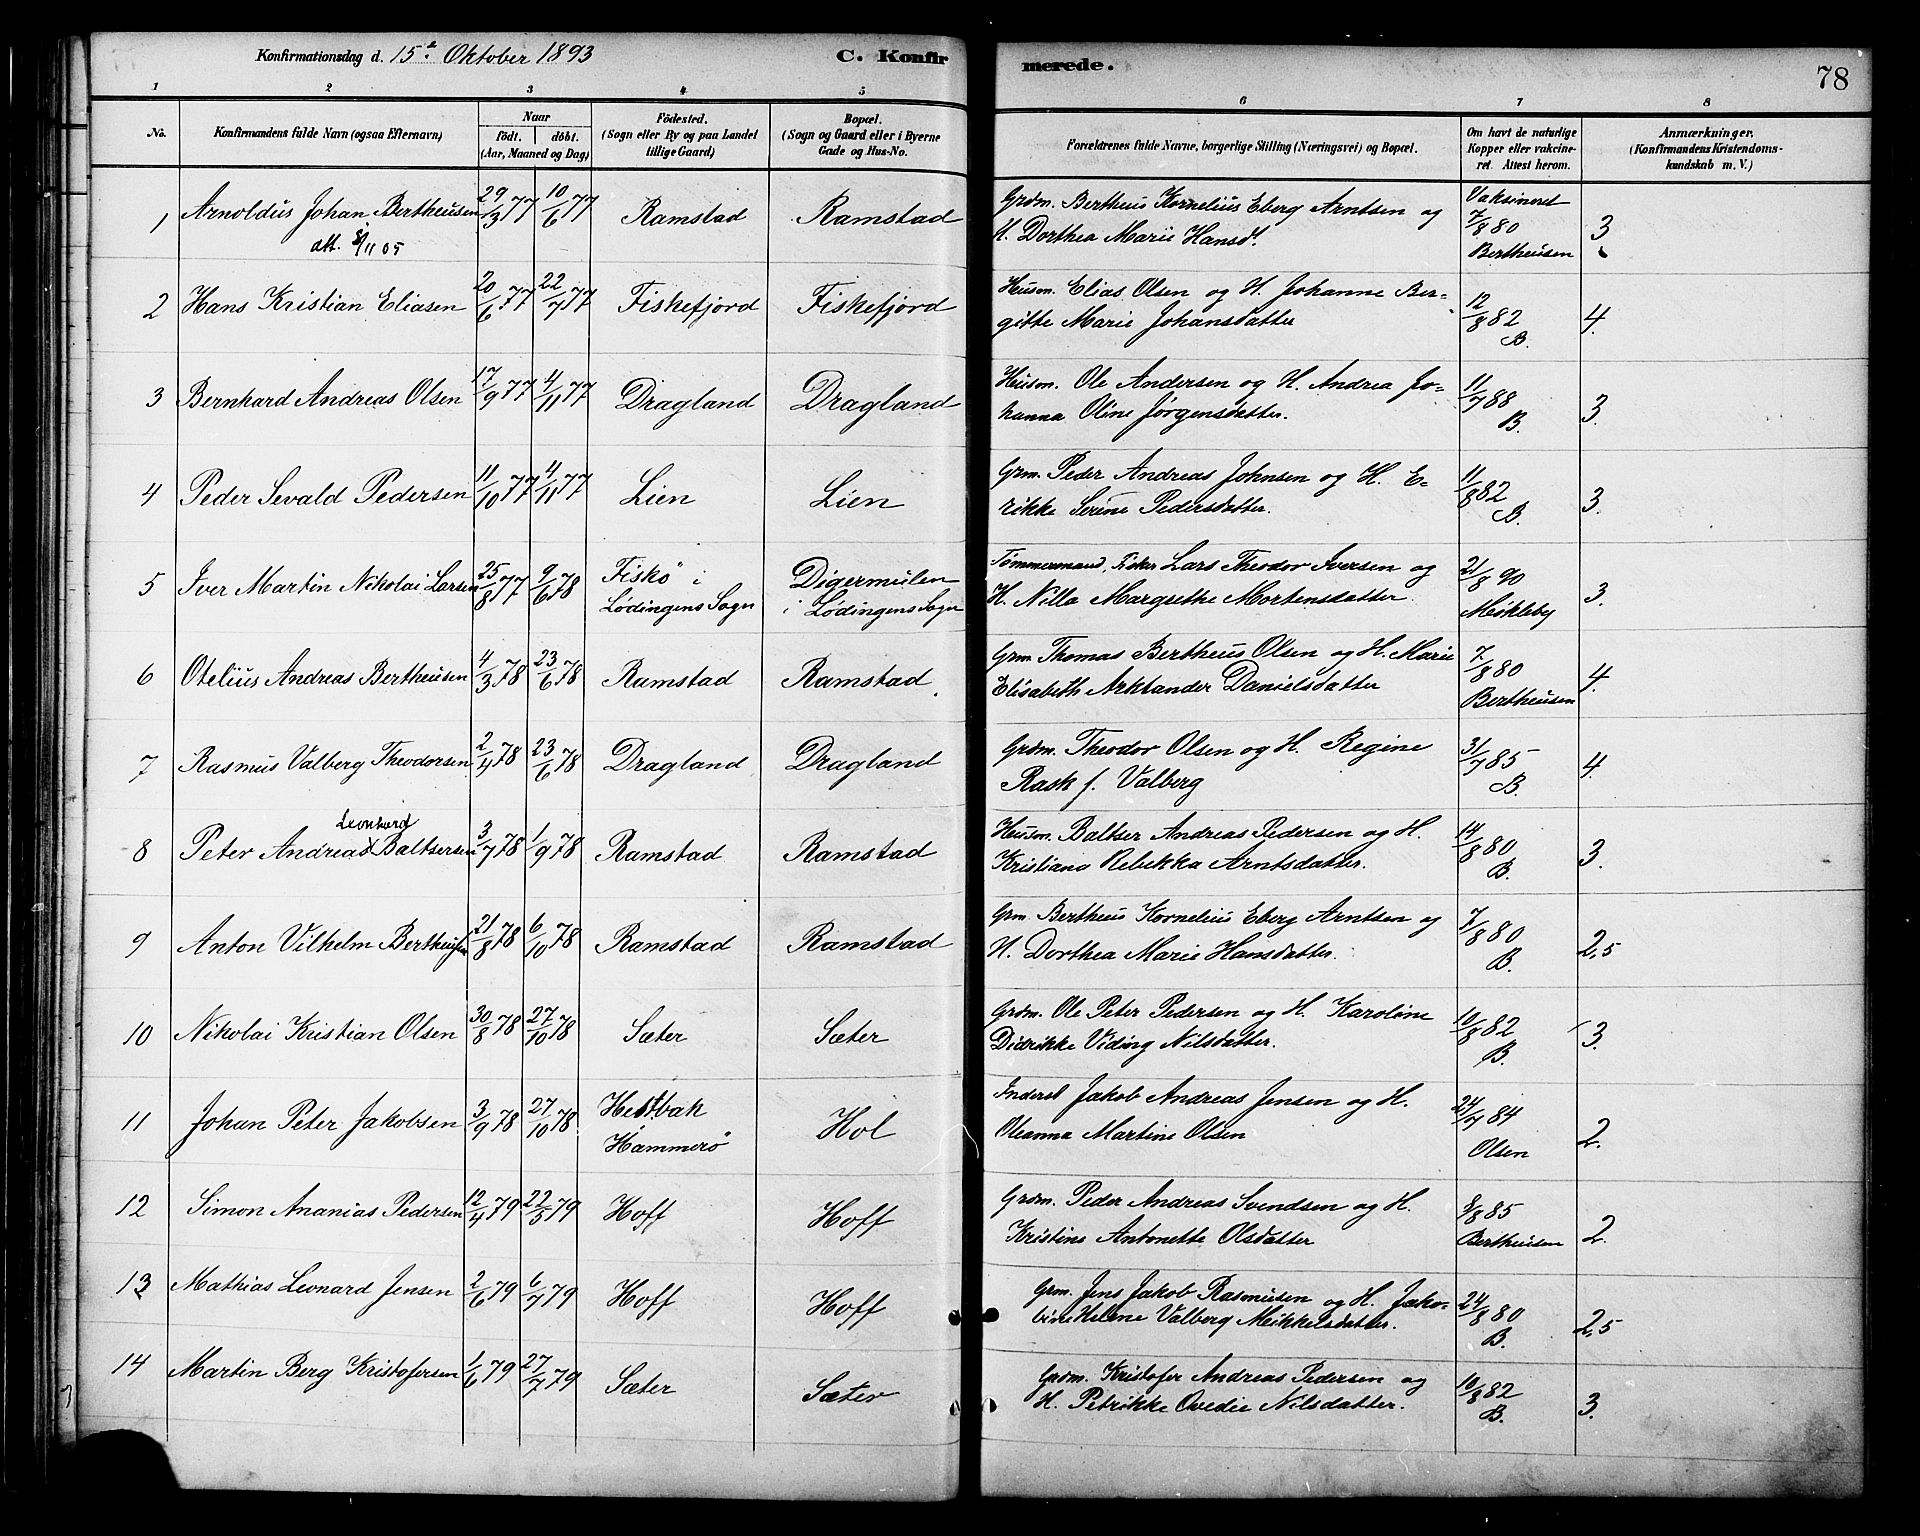 Konfirmationsdag d. 15de Oktober 1893
C. Konfir merede.
78
1 2 3 4 5 6 7 8
No.
Konfirmandens fulde Navn (ogsaa Efternavn)
Naar födt. döbt. (Aar, Maaned og Dag)
Födested. (Sogn eller By og paa Landet tillige Gaard)
Bopæl. (Sogn og Gaard eller i Byerne Gade og Hus-No.
Forældrenes fulde Navne, borgerlige Stilling (Næringsvei) og Bopæl.
Om havt de naturlige Kopper eller vakcineret. Attest herom.
Anmærkninger. (Konfirmandens Kristendomskundskab m. V.)
1 Arnoldus Johan Bertheusen 29/3 77 10/6 77 Ramstad Ramstad Grdm. Bertheus Kornelius Eberg Arntsen og Vaksineret 7/8 80 3
att. 8/11 05 H. Dorthea Marie Hansd. Bertheusen
2 Hans Kristian Eliasen 20/6 77 22/7 77 Fiskefjord Fiskefjord Husm. Elias Olsen og H. Johanne Ber- 12/8 82 4.
gitte Marie Johansdatter B.
3 Bernhard Andreas Olsen 17/9 77 4/11 77 Dragland Dragland Husm. Ole Andersen og H. Andrea Jo- 11/7 88 3.
hanna Oline Jørgensdatter. B.
4 Peder Sevald Pedersen 11/10 77 4/11 77 Lien Lien Grm. Peder Andreas Johnsen og H. E- 11/8 82 3.
rikke Serine Pedersdatter. B.
5 Iver Martin Nikolai Larsen 25/8 77 9/6 78 Fiskö i Digermulen Tømmermand, Fisker Lars Theodor Iversen og 21/8 90 3.
Lødingens Sogn i Lødingens Sogn H. Nilla Margrethe Mortensdatter Mökleby
6 Otelius Andreas Bertheusen 4/3 78 23/6 78 Ramstad Ramstad Grm. Thomas Bertheus Olsen og H. Marie 7/8 80 4.
Elisabeth Arktander Danielsdatter Bertheusen
7 Rasmus Valberg Theodorsen 2/4 78 23/6 78 Dragland Dragland Grdm. Theodor Olsen og H. Regine 31/7 85 4.
Rask f. Valberg B.
Leonhard
8 Peter Andreas Baltsersen 3/7 78 1/9 78 Ramstad Ramstad Husm. Baltser Andreas Pedersen og H. 14/8 80 3.
Kristiana Rebekka Arntsdatter. B.
9 Anton Vilhelm Bertheusen 21/8 78 6/10 78 Ramstad Ramstad Grm. Bertheus Kornelius Eberg Arntsen og 7/8 80 2,5
H. Dorthea Marie Hansdatter. B.
10 Nikolai Kristian Olsen 30/8 78 27/10 78 Sæter Sæter Grdm. Ole Peter Pedersen og H. Karoline 10/8 82 3.
Didrikke Viding Nilsdatter. B.
11 Johan Peter Jakobsen 3/9 78 27/10 78 Hestbak Hol Inderst Jakob Andreas Jensen og H. 24/7 84 2.
Hammerö Oleanna Martine Olsen Olsen
12 Simon Ananias Pedersen 12/4 79 22/5 79 Hoff Hoff Grdm. Peder Andreas Svendsen og H. 8/8 85 2.
Kristine Antonette Olsdatter Bertheusen
13 Mathias Leonard Jensen 2/6 79 6/7 79 Hoff Hoff Grm. Jens Jakob Rasmusen og H. Jako- 24/8 80 2,5
bine Helene Valberg Mikkelsdatter. B.
14 Martin Berg Kristofersen 1/6 79 27/7 79 Sæter Sæter Grdm. Kristofer Andreas Pedersen og 10/8 82 3.
H. Petrikke Ovedie Nilsdatter. B.